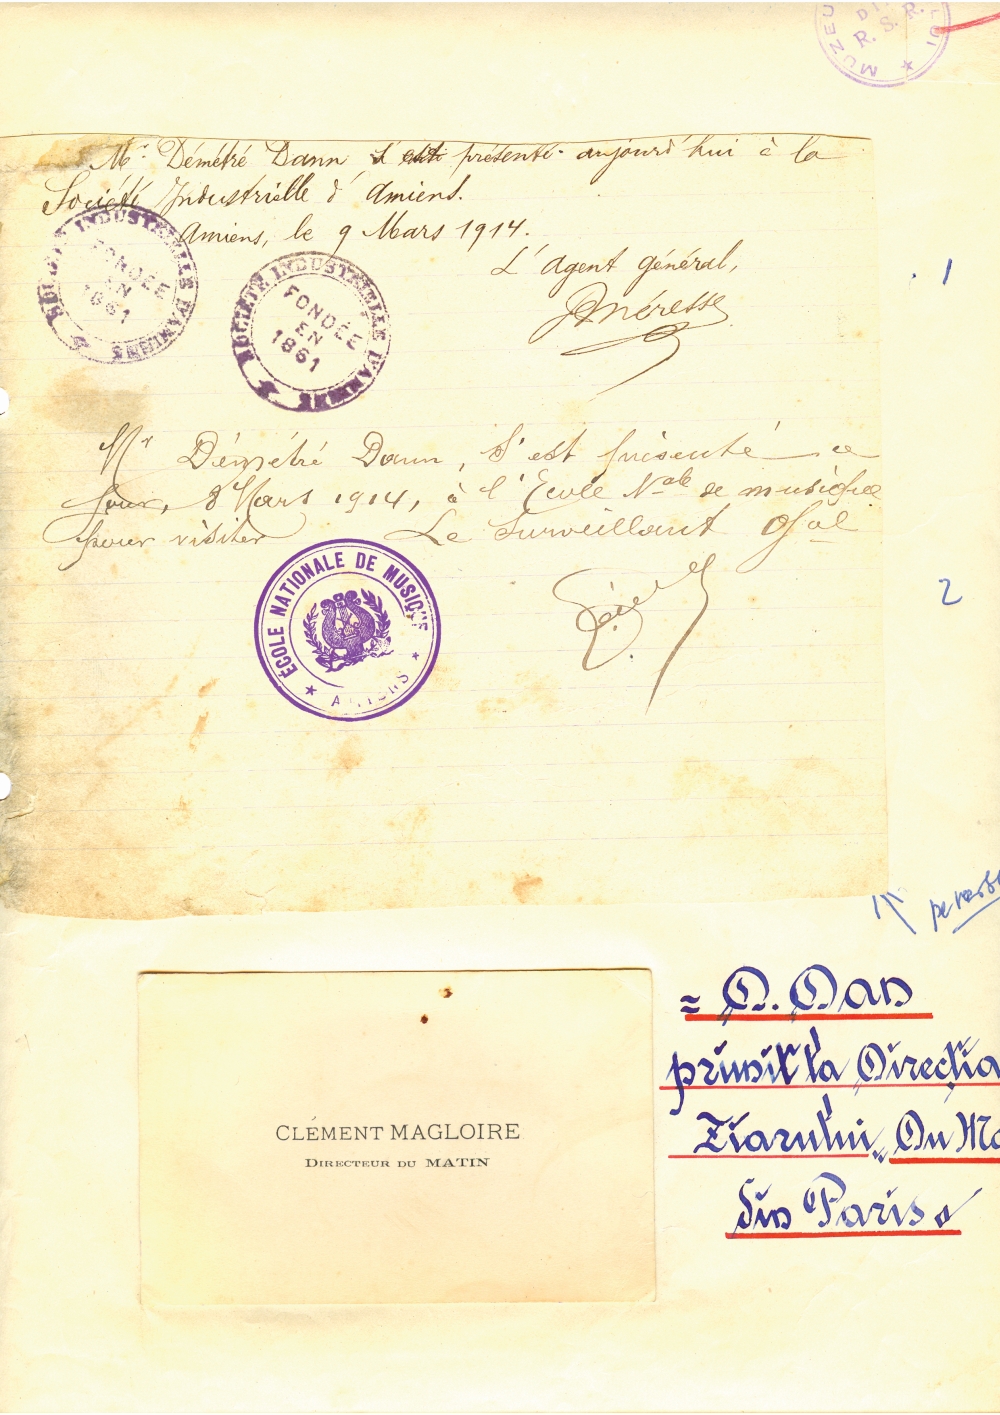 MUZEU
R. S. R.
Mr. Démétré Dann s'est présenté aujourd'hui à la
Société Industrielle d'Amiens.
Amiens, le 9 Mars 1914.
L'Agent général,
SOCIÉTÉ INDUSTRIELLE D'AMIENS
FONDÉE
EN
1861
SOCIÉTÉ INDUSTRIELLE D'AMIENS
FONDÉE
EN
1861
1
Mr Démétré Dann, s'est présenté ce
jour, 8 Mars 1914, à l'Ecole Nale de musique
pour visiter Le Surveillant Gal
ÉCOLE NATIONALE DE MUSIQUE
AMIENS
2
pe verso
= D. Dan
primit la Direcția
Ziarului „Du Ma
din Paris"
CLÉMENT MAGLOIRE
DIRECTEUR DU MATIN